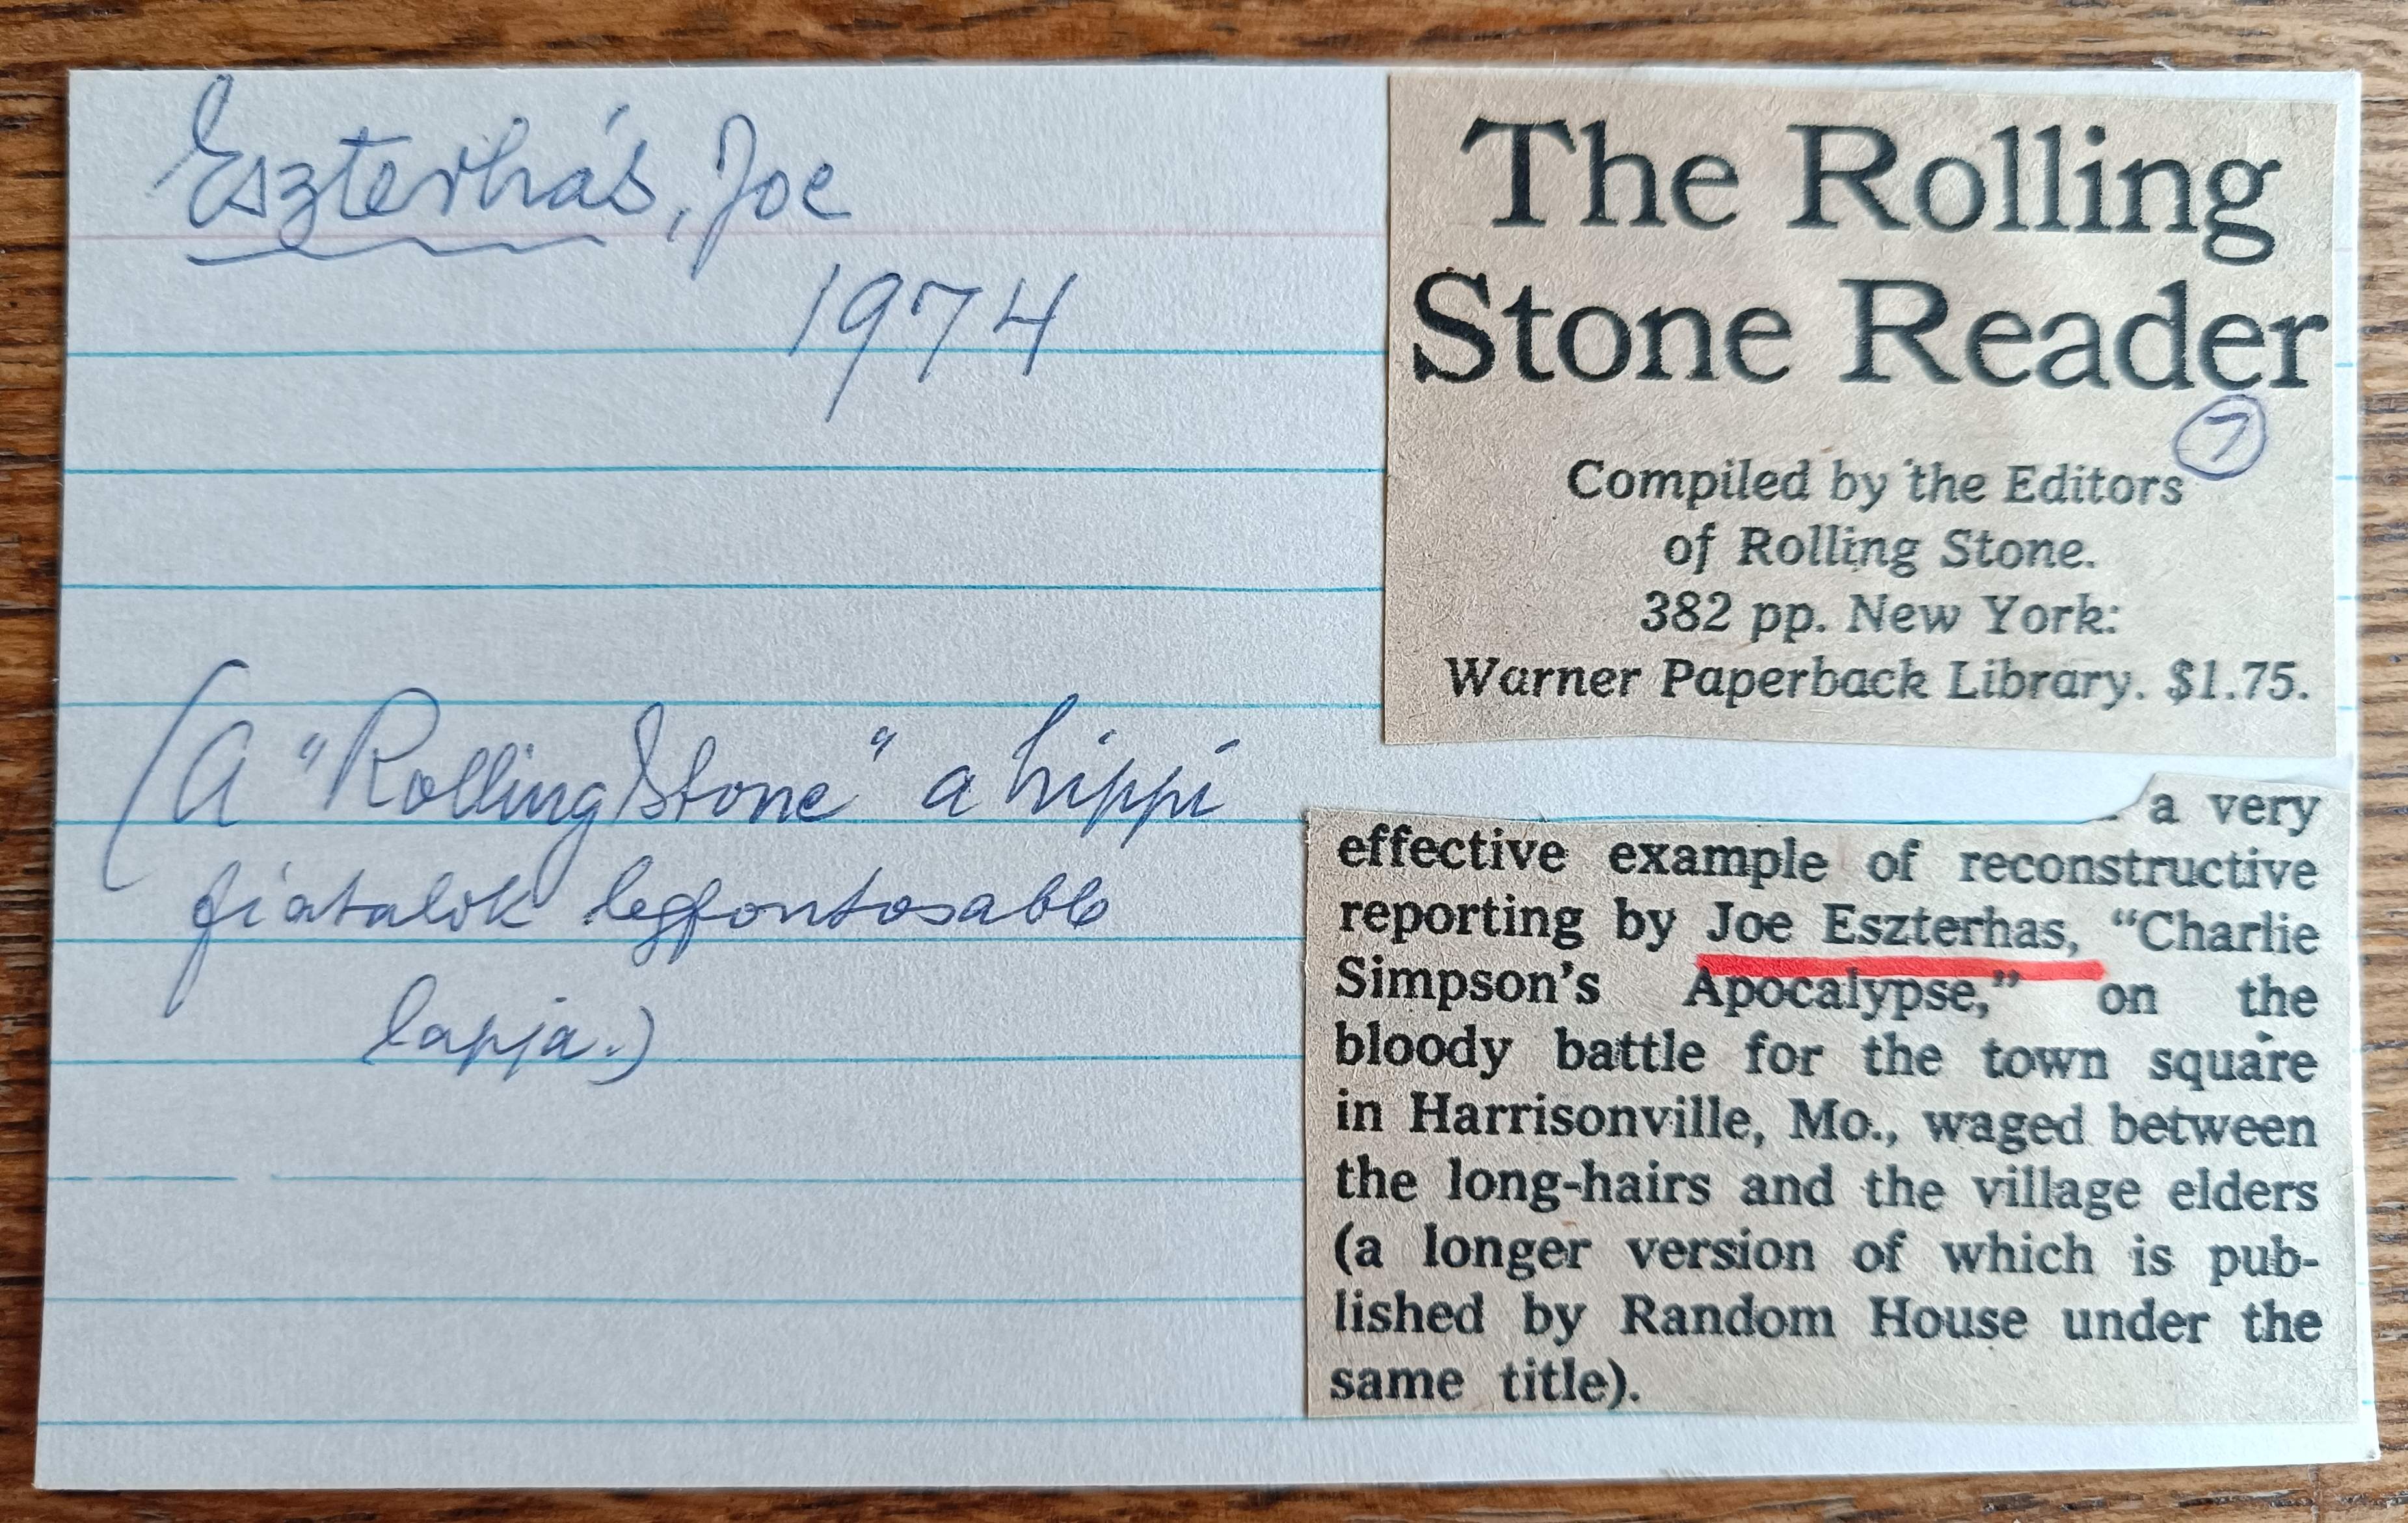 Eszterhás, Joe
1974
(A "Rolling Stone" a hippi
fiatalok legfontosabb
lapja.)
The Rolling
Stone Reader
7
Compiled by the Editors
of Rolling Stone.
382 pp. New York:
Warner Paperback Library. $1.75.
a very
effective example of reconstructive
reporting by Joe Eszterhas, “Charlie
Simpson’s Apocalypse,” on the
bloody battle for the town square
in Harrisonville, Mo., waged between
the long-hairs and the village elders
(a longer version of which is pub-
lished by Random House under the
same title).